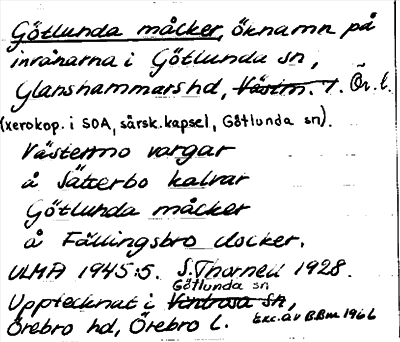 Götlunda måcker, öknamn på
inrånarna i Götlunda sn,
Glanshammars hd, Västm. l. Ör. l.
(xerokop. i SOA, särsk. kapsel, Götlunda sn).
Västermo vargar
å Sätterbo kalvar
Götlunda måcker
å Fällingsbro clocker.
ULMA 1945:5. S. Thornell 1928.
Götlunda sn
Upptecknat i Vintrosa sn,
Örebro hd, Örebro l. Exc. av BBm 1966